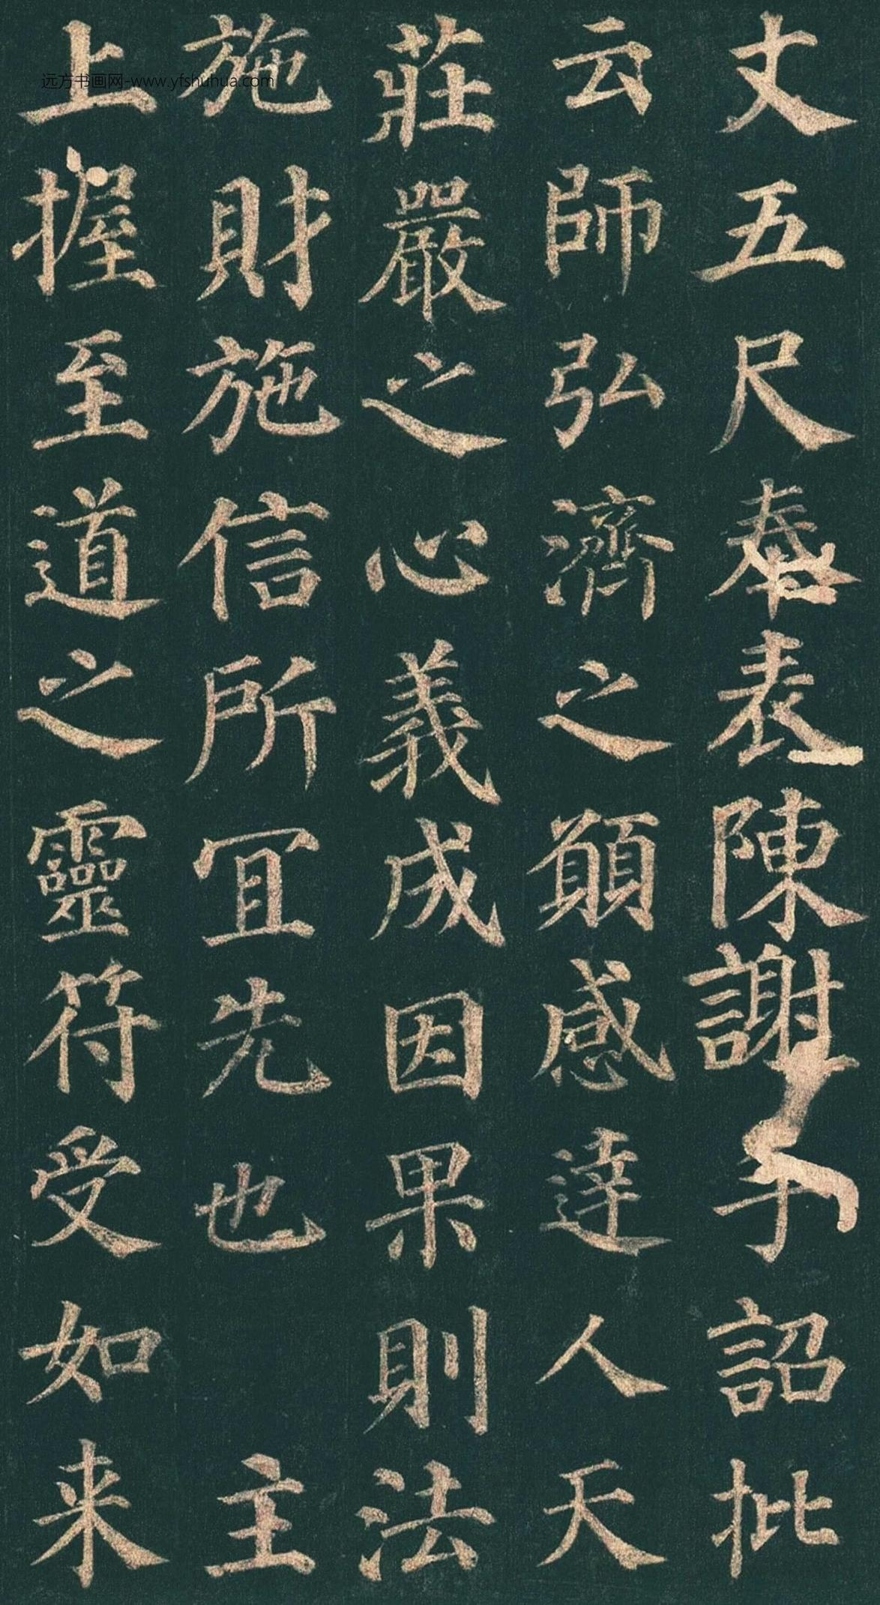 丈五尺奉表陳謝手詔批
云師弘濟之願感達人天
莊嚴之心義成因果則法
施財施信所冝先也主
上握至道之靈符受如来
远方书画网-www.yfshuhua.com